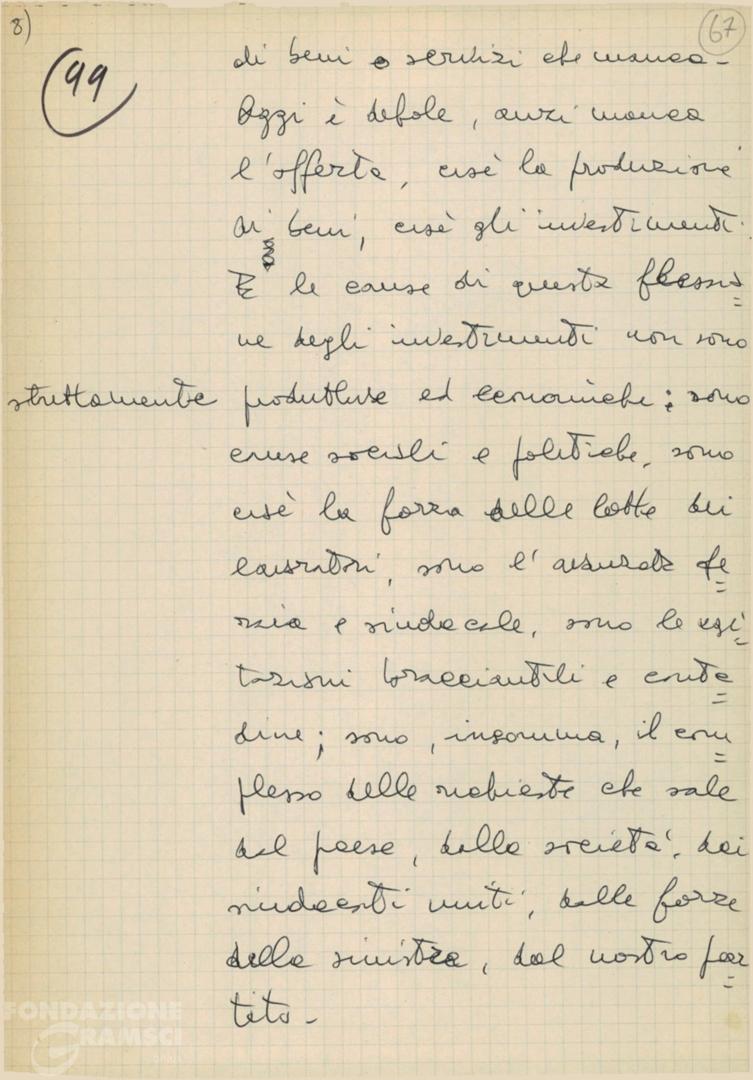 8)
67
99
di beni e servizi che manca -
Oggi è debole, anzi manca
l'offerta, cioè la produzione
di beni, cioè gli investimenti.
E le cause di questa flessio
ne degli investimenti non sono
strettamente produttive ed economiche; sono
cause sociali e politiche, sono
cioè la forza delle lotte dei
lavoratori, sono l'avanzata
e sindacale, sono le agi
tazioni bracciantili e conta
dine; sono, insomma, il com
plesso delle richieste che sale
dal paese, dalla società, dai
sindacati uniti, dalle forze
della sinistra, dal nostro par
tito -
FONDAZIONE
GRAMSCI